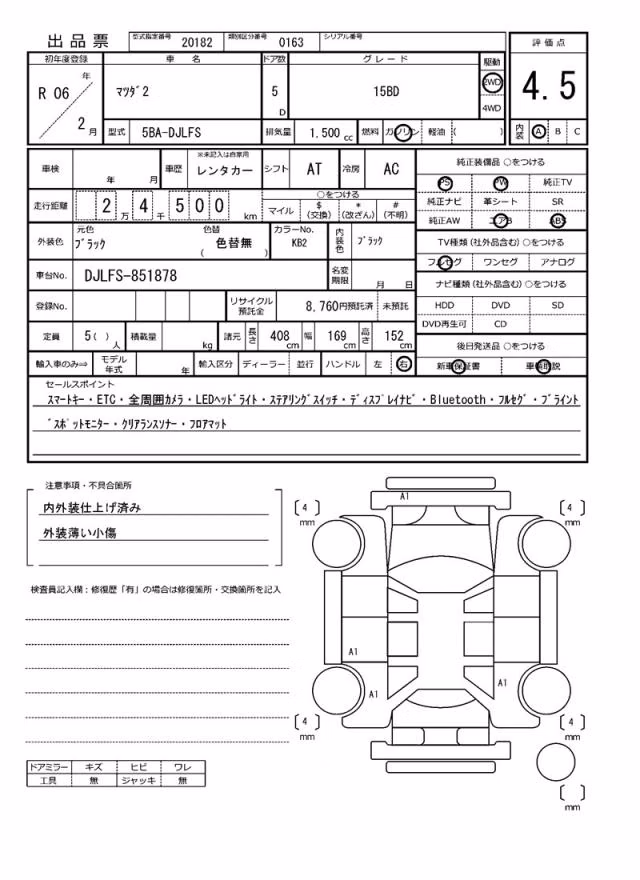 出品票 型式指定番号 20182 類別区分番号 0163 シリアル番号
初年度登録 車名 ドア数 グレード 駆動 評価点
R 06 年 2 月 マツダ2 5 D 15BD 2WD 4WD 4.5
型式 5BA-DJLFS 排気量 1.500 cc 燃料 ガソリン 軽油 ( ) 内装 A B C
車検 年 月 車歴 ※未記入は自家用 レンタカー シフト AT 冷房 AC 純正装備品 ○をつける
PS PW 純正TV
走行距離 2 万 4 千 5 0 0 km ○をつける マイル $ (交換) * (改ざん) # (不明) 純正ナビ 革シート SR
純正AW エアB ABS
外装色 元色 ブラック 色替 色替無 ( ) カラーNo. KB2 内装色 ブラック TV種類 (社外品含む) ○をつける
フルセグ ワンセグ アナログ
車台No. DJLFS-851878 名変期限 月 日 ナビ種類 (社外品含む) ○をつける
登録No. リサイクル預託金 8,760円預託済 未預託 HDD DVD SD
DVD再生可 CD
定員 5( ) 人 積載量 kg 諸元 長さ 408 cm 幅 169 cm 高さ 152 cm 後日発送品 ○をつける
輸入車のみ⇒ モデル年式 年 輸入区分 ディーラー 並行 ハンドル 左 右 新車保証書 車輌取説
セールスポイント
スマートキー・ETC・全周囲カメラ・LEDヘッドライト・ステアリングスイッチ・ディスプレイナビ・Bluetooth・フルセグ・ブライント
゛スポットモニター・クリアランスソナー・フロアマット
注意事項・不具合箇所
内外装仕上げ済み
外装薄い小傷
検査員記入欄：修復歴「有」の場合は修復箇所・交換箇所を記入
ドアミラー キズ ヒビ ワレ
工具 無 ジャッキ 無
A1
[ 4 ] mm
[ 4 ] mm
A1
A1
A1
[ 4 ] mm
[ 4 ] mm
[ ] mm